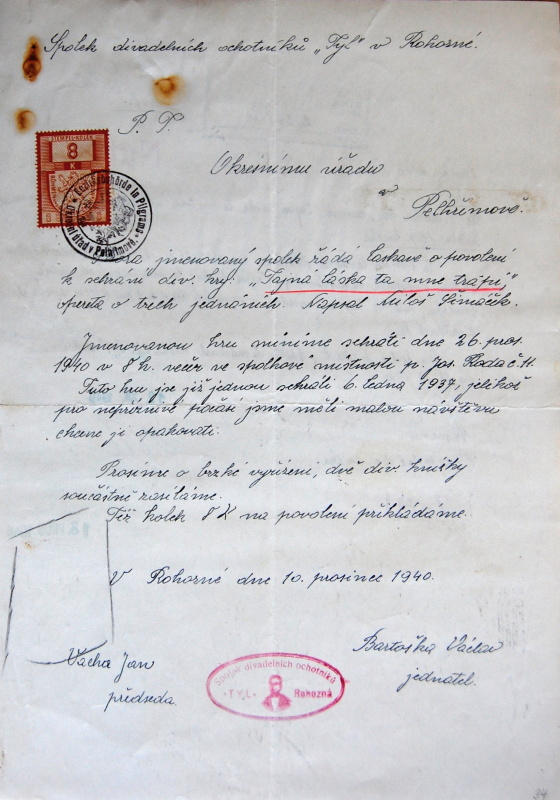 Spolek divadelních ochotníků „Tyl" v Rohozné.
P. T.
STEMPEL-KOLEK
8
K
Okresnímu úřadu
v
Pelhřimově.
jmenovaný spolek žádá laskavě o povolení
k sehrání div. hry: „Tajná láska ta mne trápí,"
opereta o třech jednáních. Napsal Miloš Šimáček.
Jmenovanou hru míníme sehráti dne 26. pros.
1940 v 8 h. večer ve spolkové místnosti p. Jos. Kada č. 11
Tuto hru jsme již jednou sehráli 6. ledna 1937, jelikož
pro nepříznivé počasí jsme měli malou návštěvu
chceme ji opakovati.
Prosíme o brzké vyřízení, dvě div. knížky
současně zasíláme.
Též kolek 8 K na povolení přikládáme.
V Rohozné dne 10. prosince 1940.
Vácha Jan
předseda.
Spolek divadelních ochotníků
TYL Rohozná
Bartoška Václav
jednatel.
34